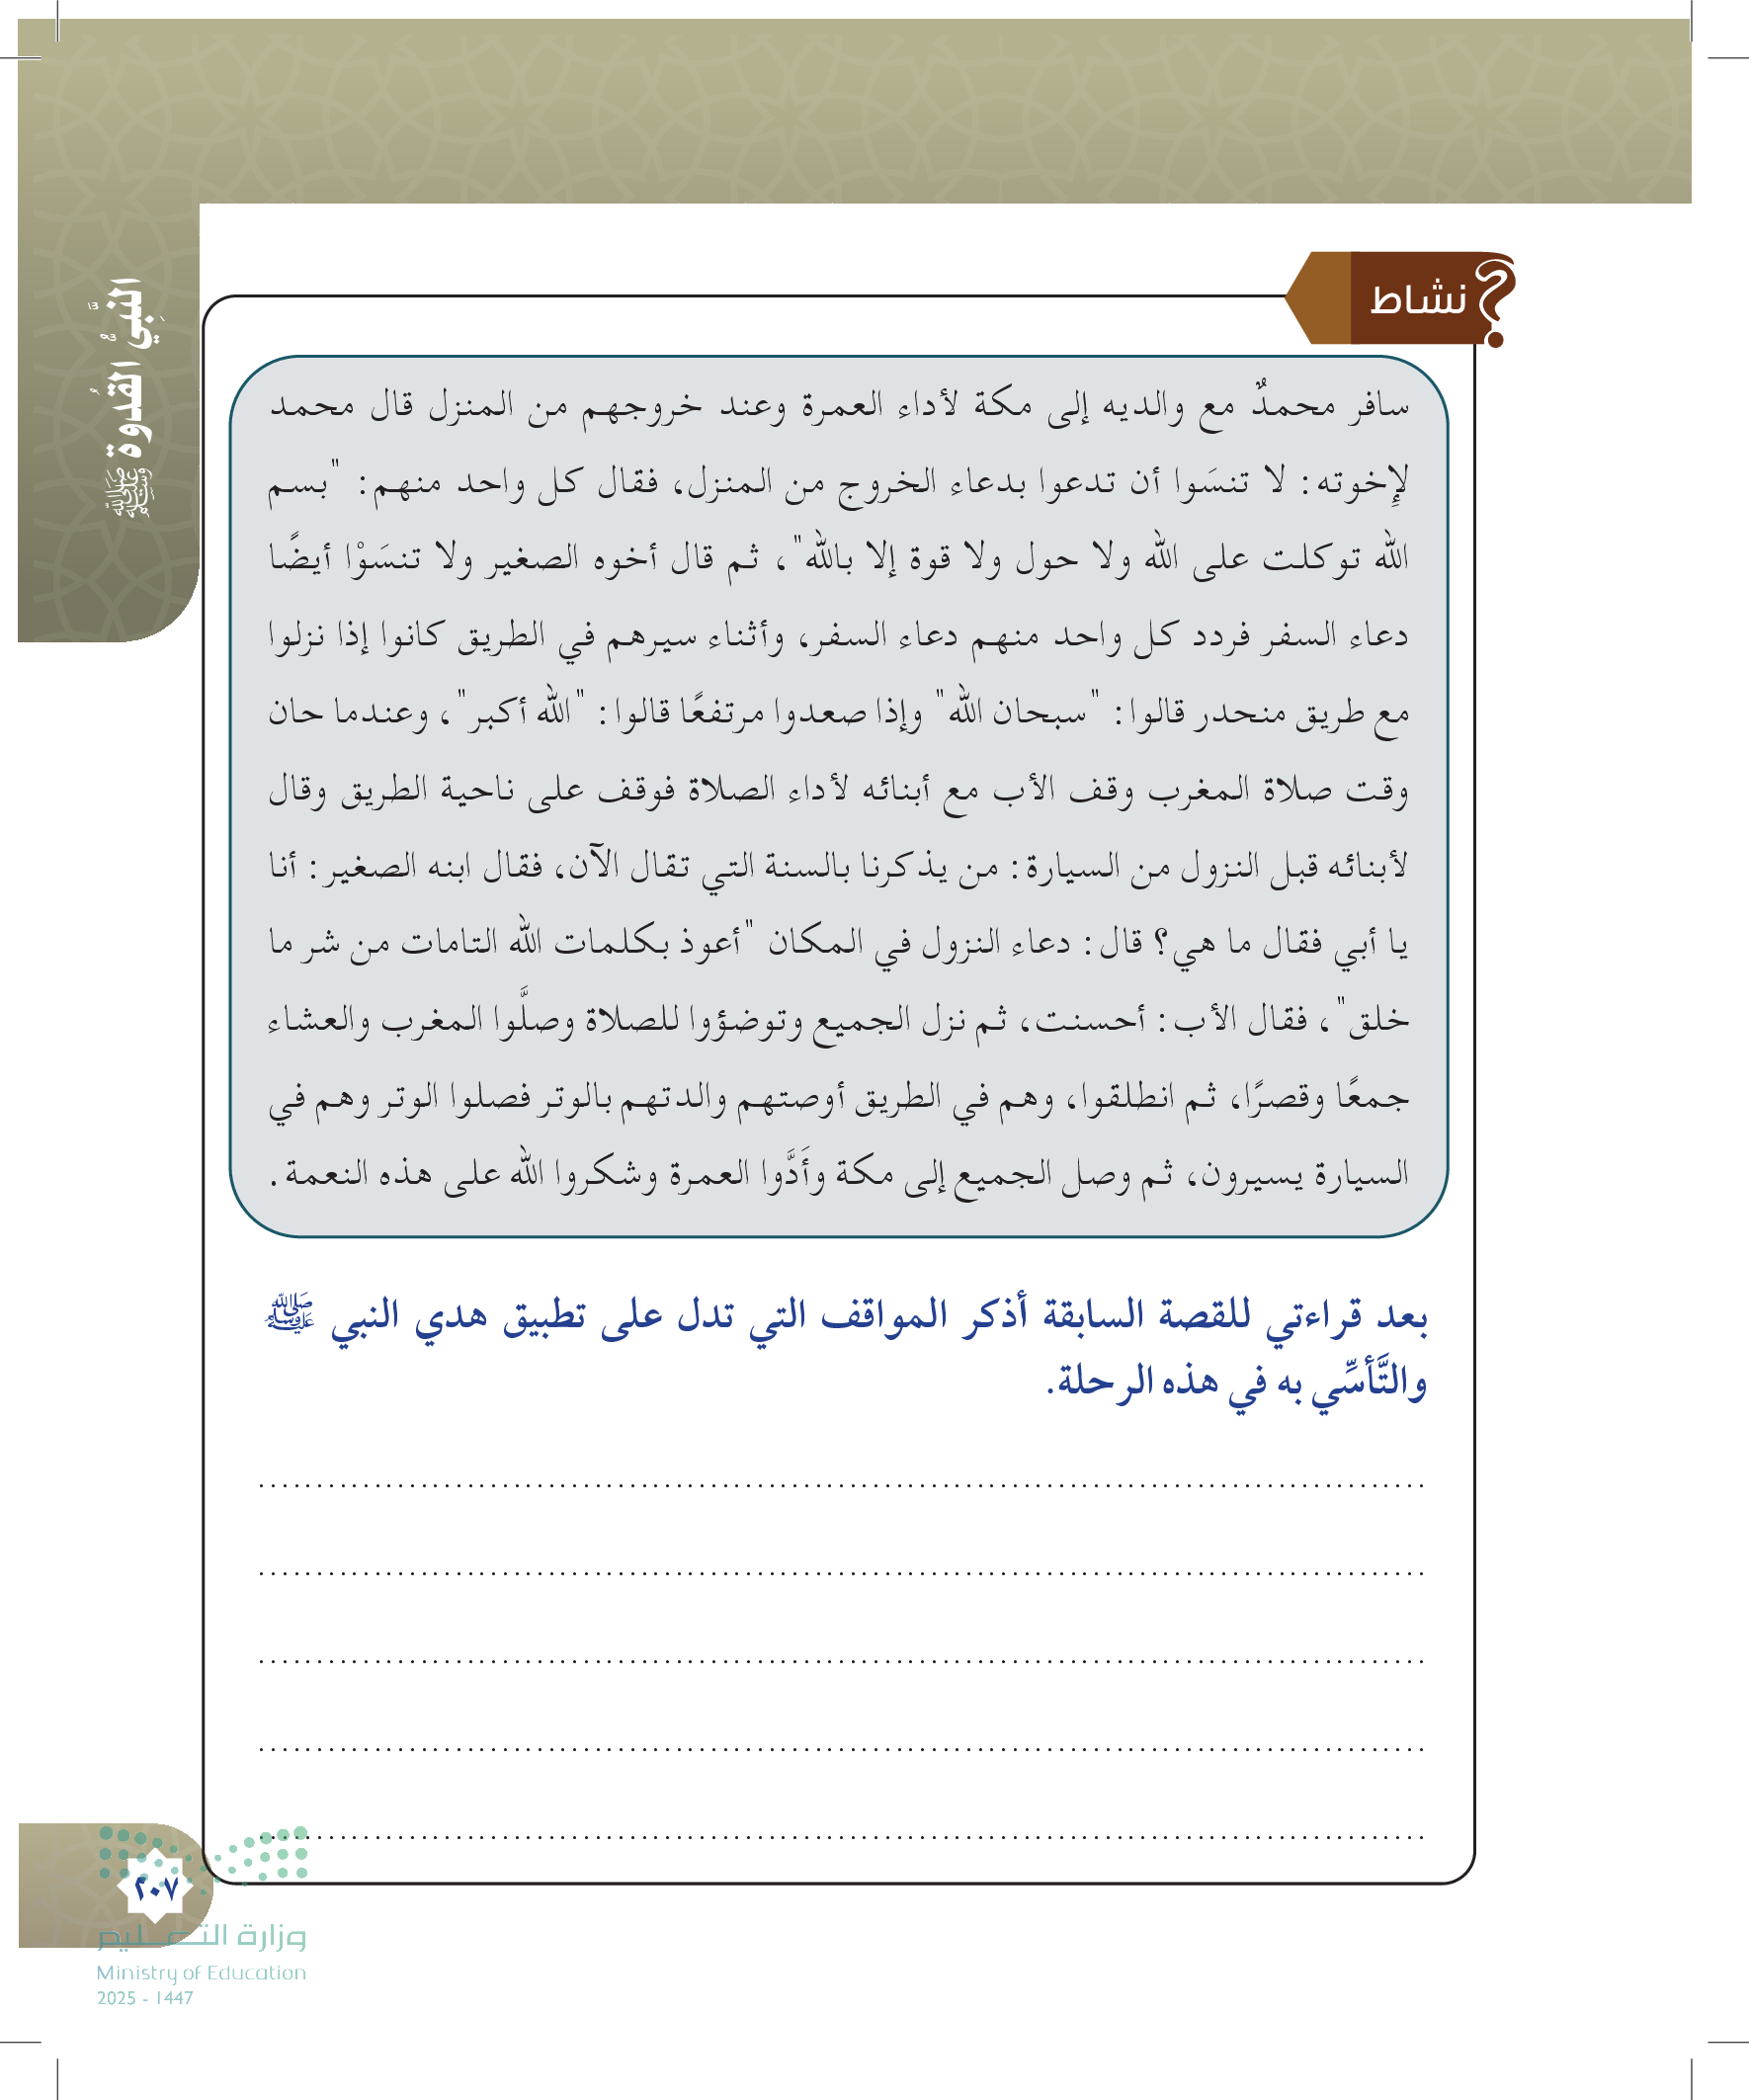 النَّبِيُّ القُدوة ﷺ
نشاط
سافر محمدٌ مع والديه إلى مكة لأداء العمرة وعند خروجهم من المنزل قال محمد
لإِخوته: لا تنسَوا أن تدعوا بدعاء الخروج من المنزل، فقال كل واحد منهم: "بسم
الله توكلت على الله ولا حول ولا قوة إلا بالله"، ثم قال أخوه الصغير ولا تنسَوْا أيضًا
دعاء السفر فردد كل واحد منهم دعاء السفر، وأثناء سيرهم في الطريق كانوا إذا نزلوا
مع طريق منحدر قالوا: "سبحان الله" وإذا صعدوا مرتفعًا قالوا: "الله أكبر"، وعندما حان
وقت صلاة المغرب وقف الأب مع أبنائه لأداء الصلاة فوقف على ناحية الطريق وقال
لأبنائه قبل النزول من السيارة: من يذكرنا بالسنة التي تقال الآن، فقال ابنه الصغير: أنا
يا أبي فقال ما هي؟ قال: دعاء النزول في المكان "أعوذ بكلمات الله التامات من شر ما
خلق"، فقال الأب: أحسنت، ثم نزل الجميع وتوضؤوا للصلاة وصلَّوا المغرب والعشاء
جمعًا وقصرًا، ثم انطلقوا، وهم في الطريق أوصتهم والدتهم بالوتر فصلوا الوتر وهم في
السيارة يسيرون، ثم وصل الجميع إلى مكة وأَدَّوا العمرة وشكروا الله على هذه النعمة.
بعد قراءتي للقصة السابقة أذكر المواقف التي تدل على تطبيق هدي النبي ﷺ
والتَّأسِّي به في هذه الرحلة.
٢٠٧
وزارة التعليم
Ministry of Education
2025 - 1447